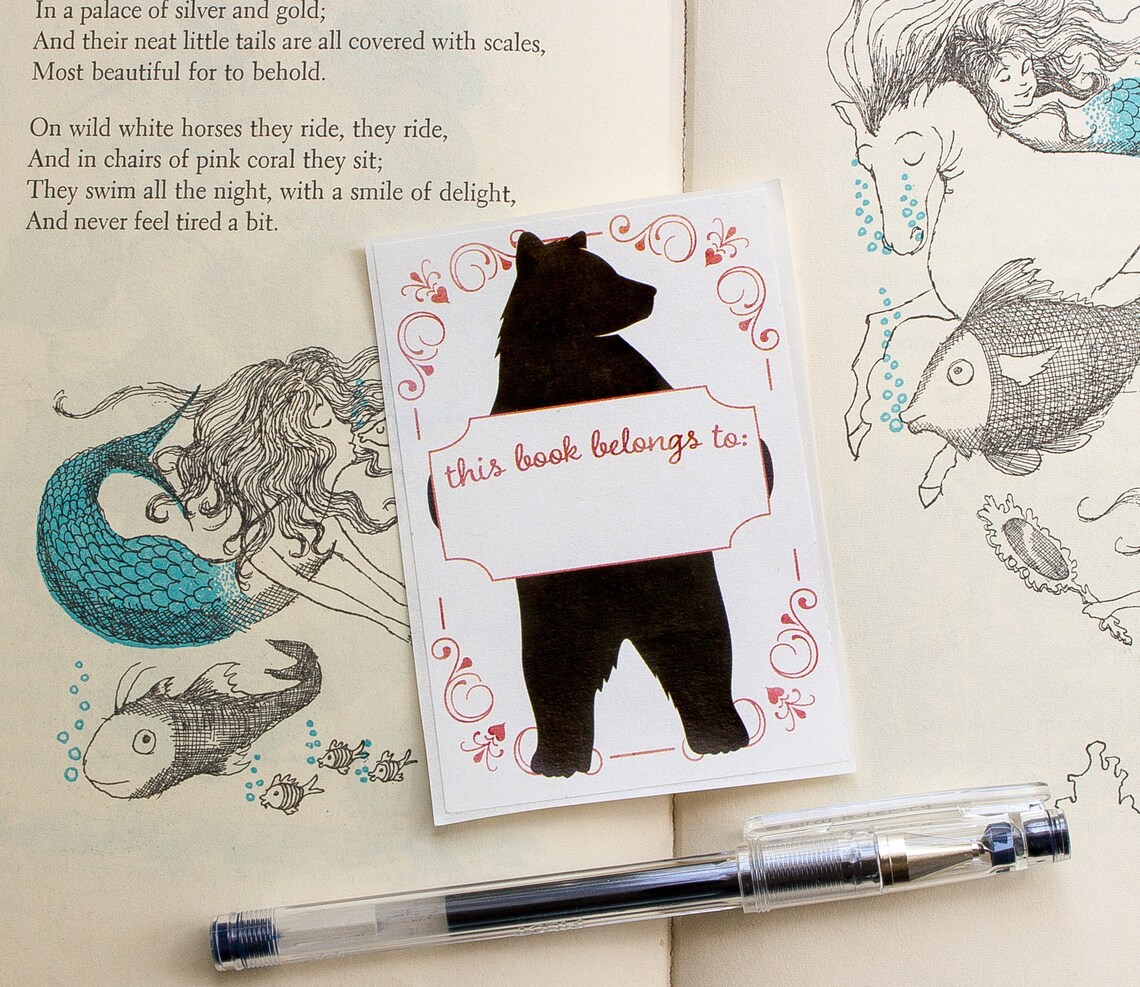 In a palace of silver and gold;
And their neat little tails are all covered with scales,
Most beautiful for to behold.
On wild white horses they ride, they ride,
And in chairs of pink coral they sit;
They swim all the night, with a smile of delight,
And never feel tired a bit.
this book belongs to: